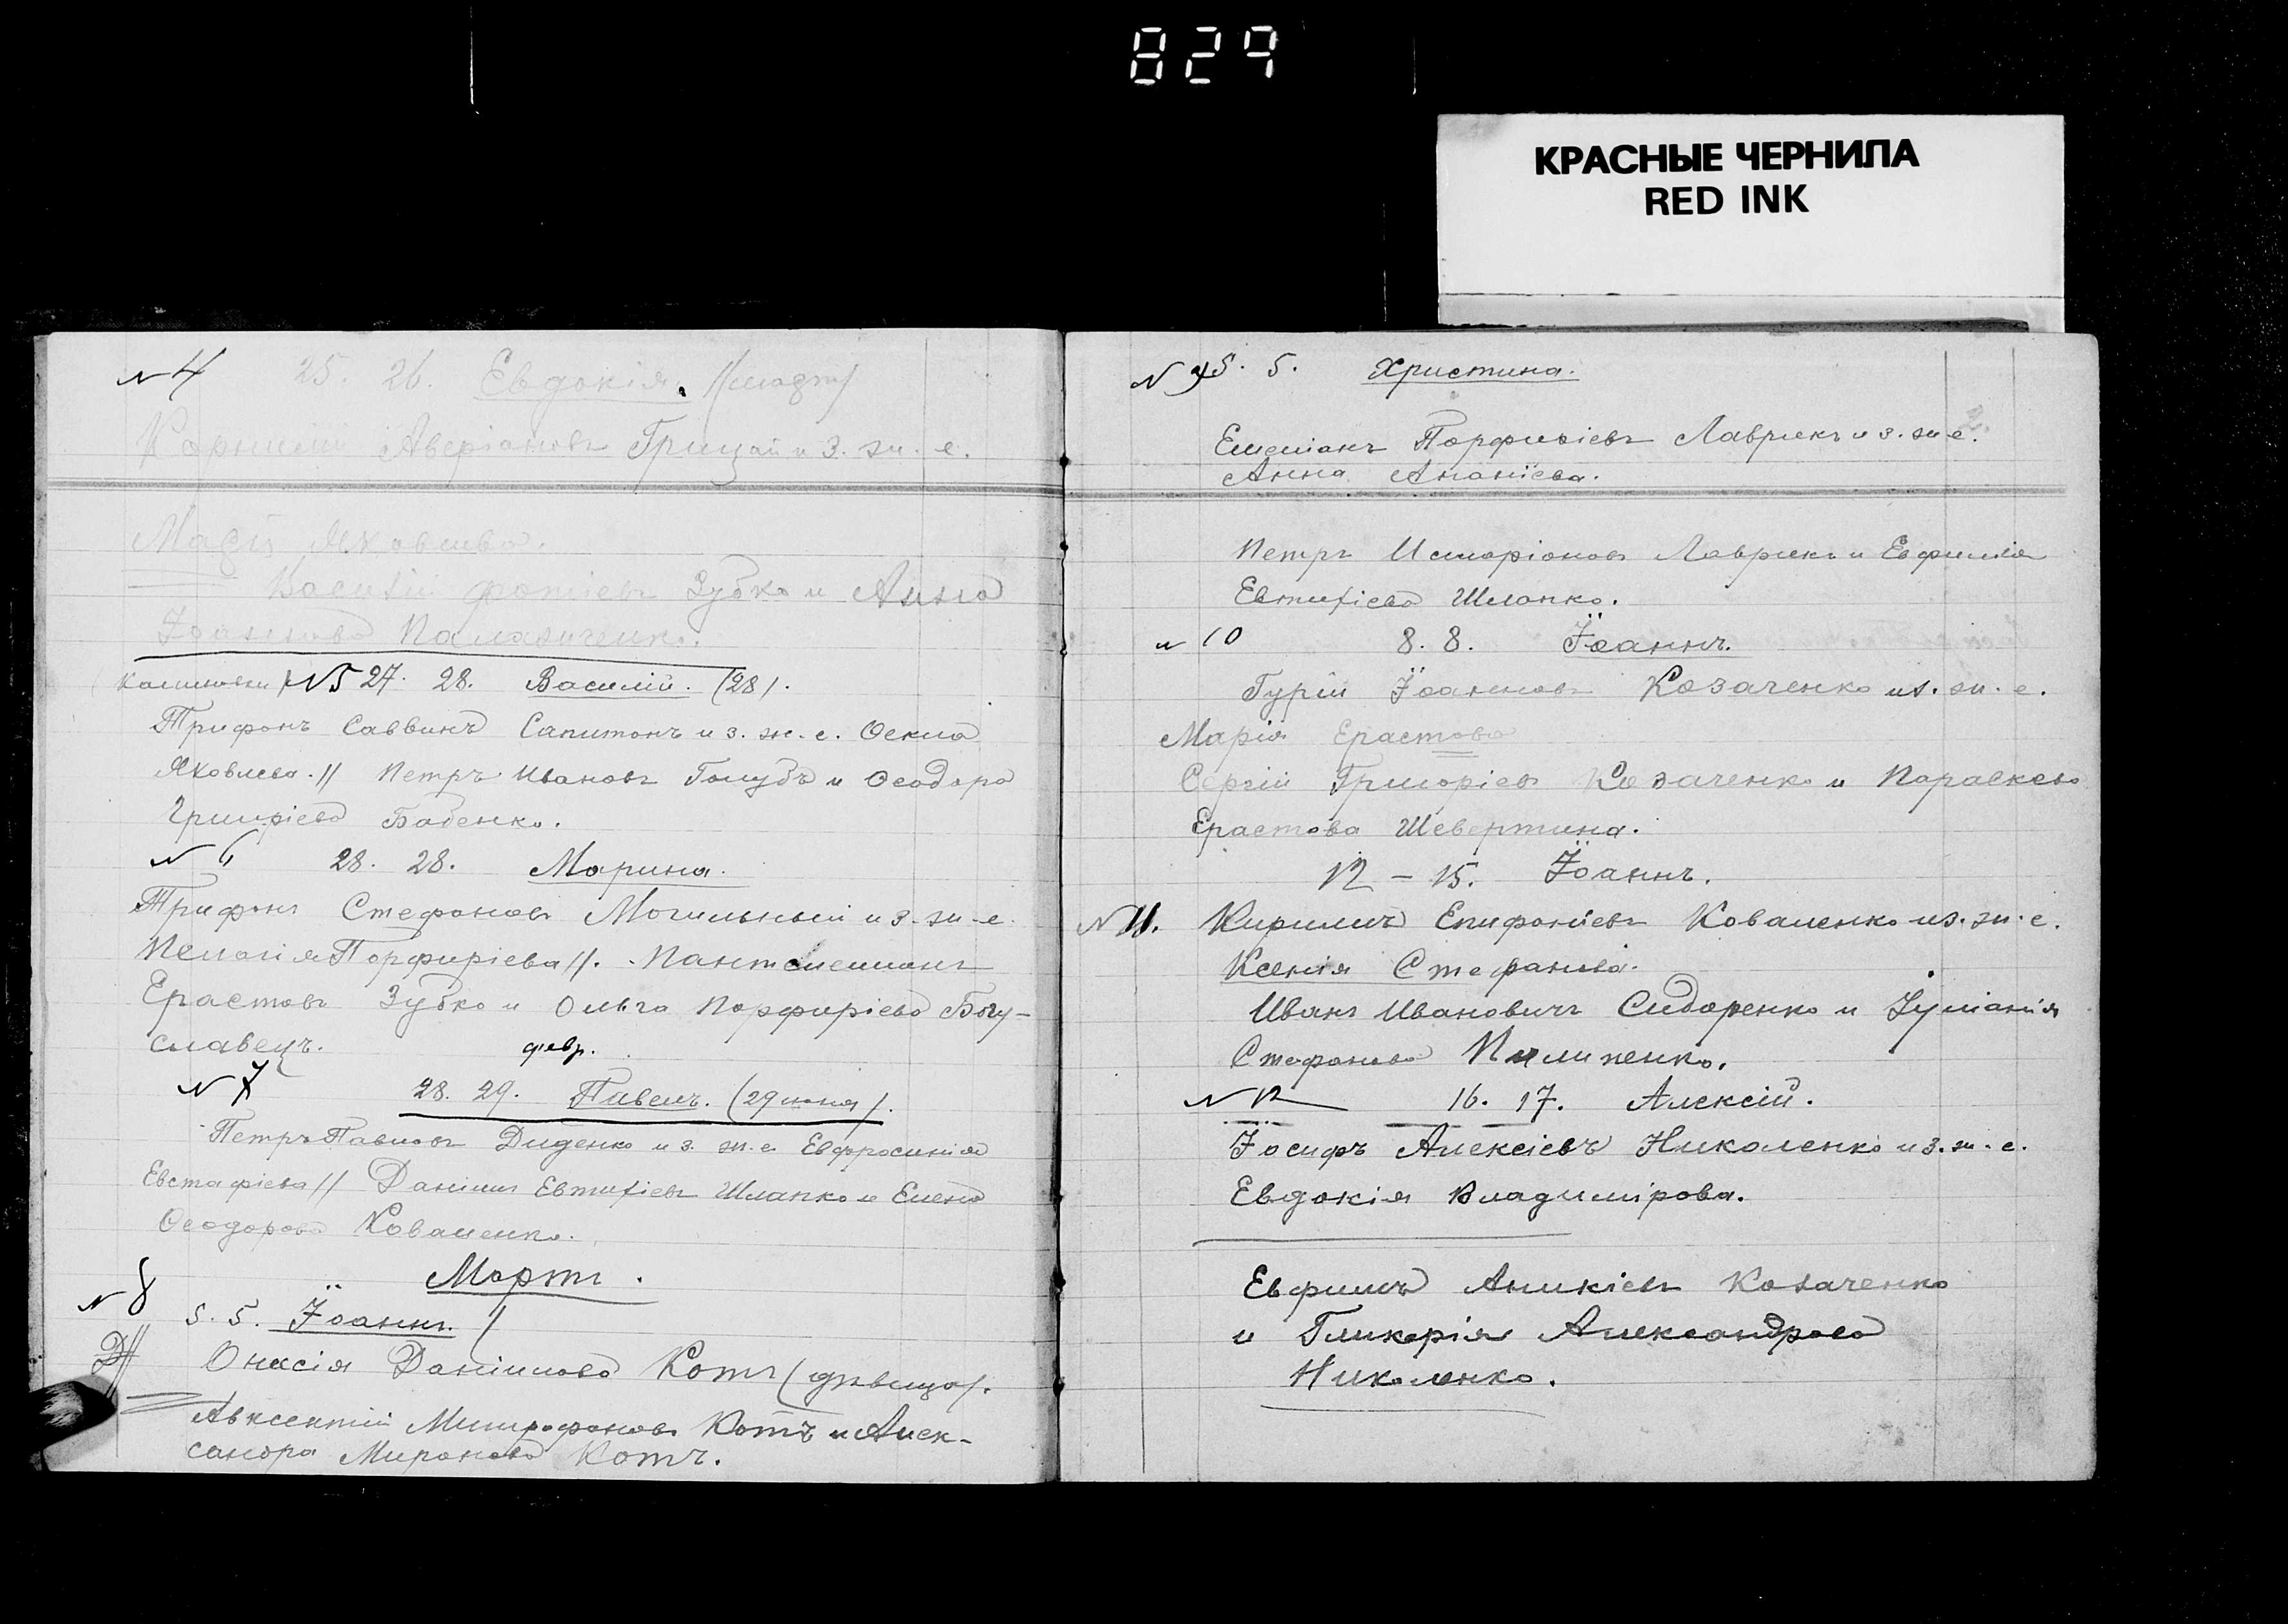 829
КРАСНЫЕ ЧЕРНИЛА
RED INK
№ 4 25. 26. Евдокія. (1 марта)
Аверіановъ Грицай и з. ж. е.
Яковлева.
Василій Фотіевъ Зубко и Анна
Іоаннова
№ 5 27. 28. Василій. (28).
Трифонъ Саввинъ Сапитонъ и з. ж. е.
Яковлева. // Петръ Ивановъ Голубъ и Ѳеодора
Григоріева Бабенко.
№ 6 28. 28. Марина.
Трифонъ Стефановъ Могильный и з. ж. е.
Пелагія Порфиріева //. Пантелеимонъ
Ерастовъ Зубко и Ольга Порфиріева Богу-
славецъ. февр.
№ 7 28. 29. Павелъ. (29 іюня).
Петръ Павловъ Диденко и з. ж. е. Евфросинія
Евстафіева // Даніилъ Евтихіевъ Шлапко и Елена
Ѳеодорова Коваленко.
Мартъ.
№ 8
5. 5. Іоаннъ.
Даніилова Котъ (дѣвица).
Авксентій Митрофановъ Котъ и Алек-
сандра Миронова Котъ.
№ 9 5. 5. Христина.
Емеліанъ Порфиріевъ Лаврикъ и з. ж. е.
Анна Ананіева.
Петръ Иларіоновъ Лаврикъ и Евфимія
Евтихіева Шлапко.
№ 10 8. 8. Іоаннъ.
Гурій Іоанновъ Козаченко и з. ж. е.
Марія Ерастова
Сергій Григоріевъ Козаченко и Параскева
Ерастова Шевертина.
12 – 15. Іоаннъ.
№ 11. Кириллъ Епифаніевъ Коваленко и з. ж. е.
Ксенія Стефанова.
Иванъ Ивановичъ Сидоренко и Іуліанія
Стефанова Пилипенко.
№ 12 16. 17. Алексій.
Іосифъ Алексіевъ Николенко и з. ж. е.
Евдокія Владимірова.
Евфимъ Аникіевъ Козаченко
и Гликерія Александрова
Николенко.